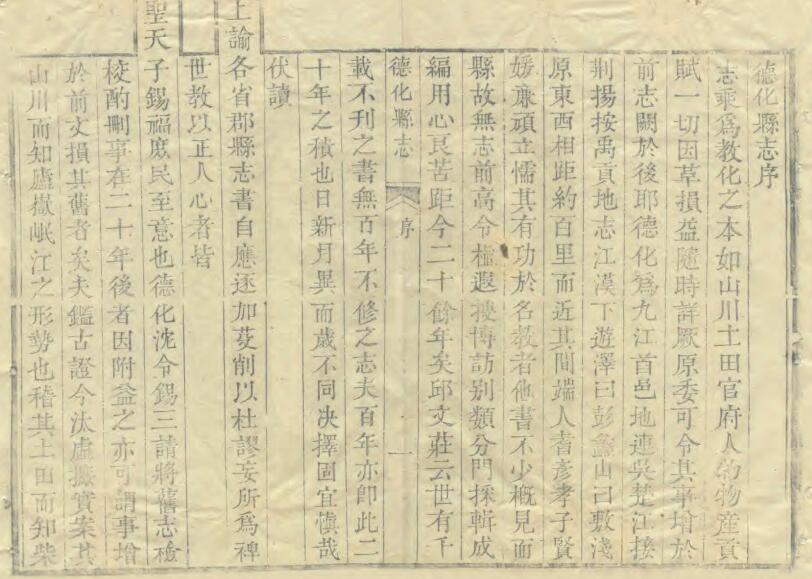 德化縣志序
志乘爲教化之本如山川土田官府人物物產貢
賦一切因革損益隨時詳厥原委可令其事增於
前志闕於後耶德化爲九江首邑地連吳楚江接
荆揚按禹貢地志江漢下遊澤曰彭蠡山曰敷淺
原東西相距約百里而近其間端人耆彥孝子賢
媛亷頑立懦其有功於名教者他書不少槪見而
縣故無志前高令植遐搜博訪别類分門採輯成
編用心良苦距今二十餘年矣邱文莊云世有千
德化縣志 序 一
載不刋之書無百年不修之志夫百年亦卽此二
十年之積也日新月異而歲不同决擇固宜愼哉
伏讀
上諭各省郡縣志書自應逐加芟削以杜謬妄所爲裨
世教以正人心者皆
聖天子錫福庶民至意也德化沈令錫三請將舊志檢
校酌刪事在二十年後者因附益之亦可謂事增
於前文損其舊者矣夫鑑古證今汰虛摭實案其
山川而知廬嶽岷江之形勢也稽其土田而知柴